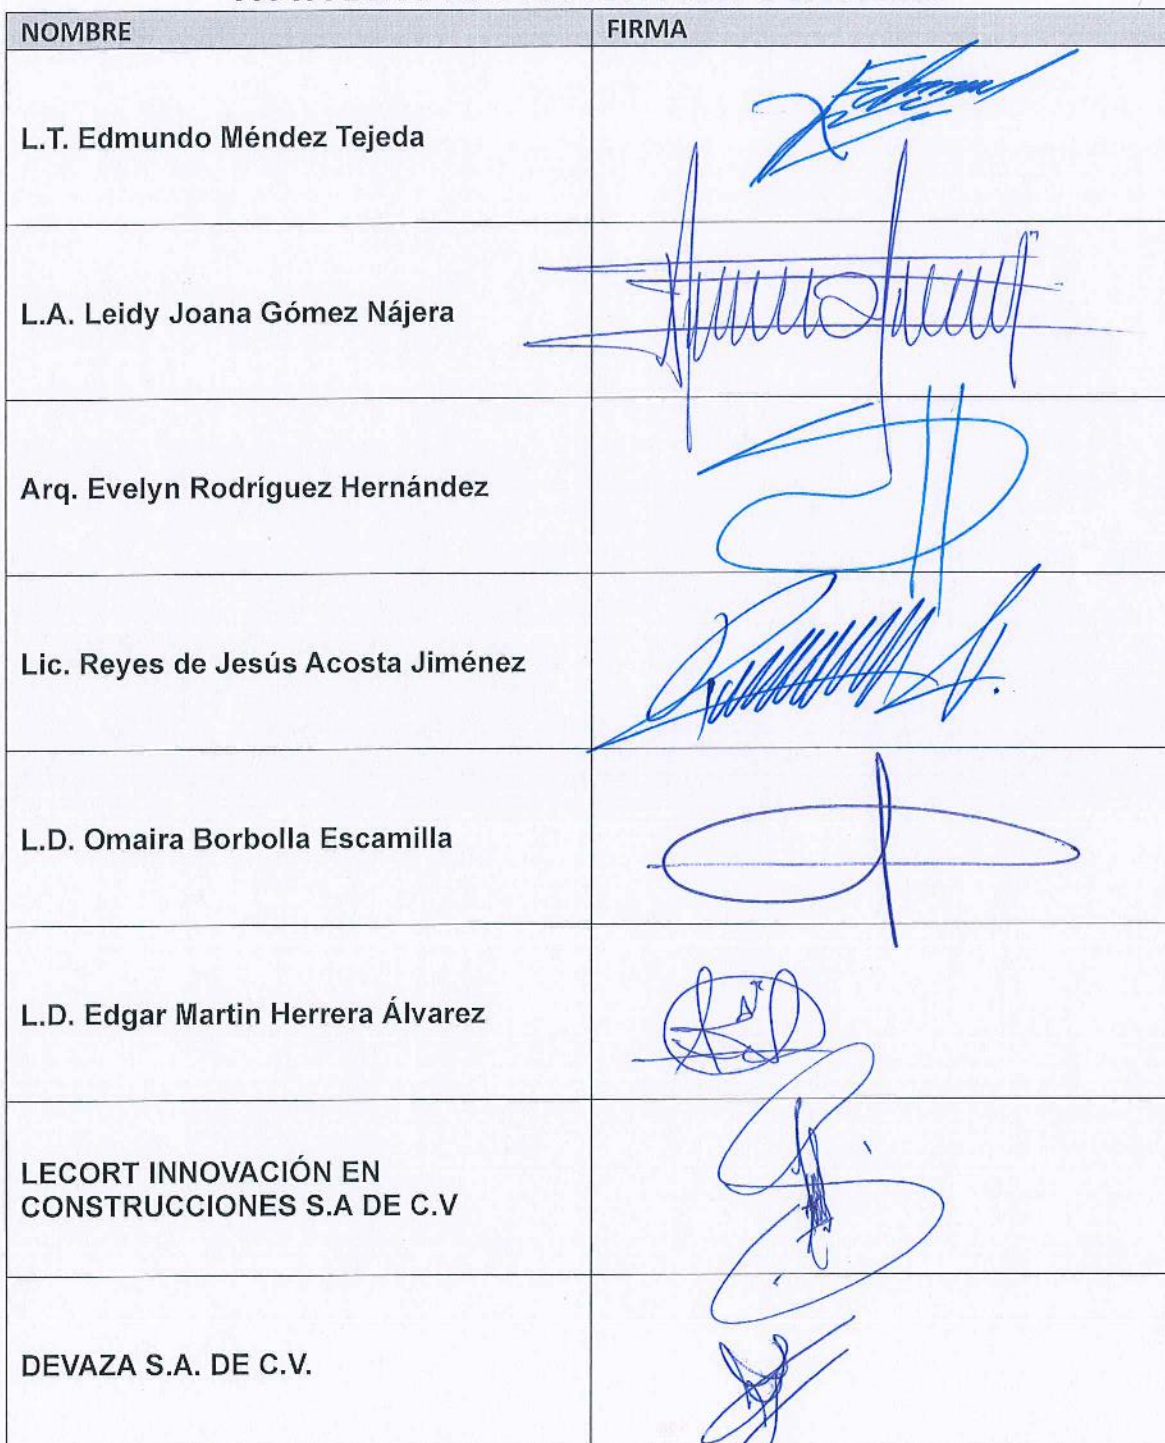 NOMBRE FIRMA
L.T. Edmundo Méndez Tejeda
L.A. Leidy Joana Gómez Nájera
Arq. Evelyn Rodríguez Hernández
Lic. Reyes de Jesús Acosta Jiménez
L.D. Omaira Borbolla Escamilla
L.D. Edgar Martin Herrera Álvarez
LECORT INNOVACIÓN EN
CONSTRUCCIONES S.A DE C.V
DEVAZA S.A. DE C.V.